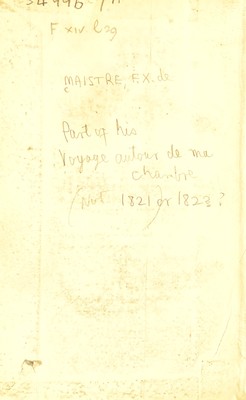 F xiv b 29
MAISTRE, F.X. de
Part of his
Voyage autour de ma
chambre
1821) or 1823?